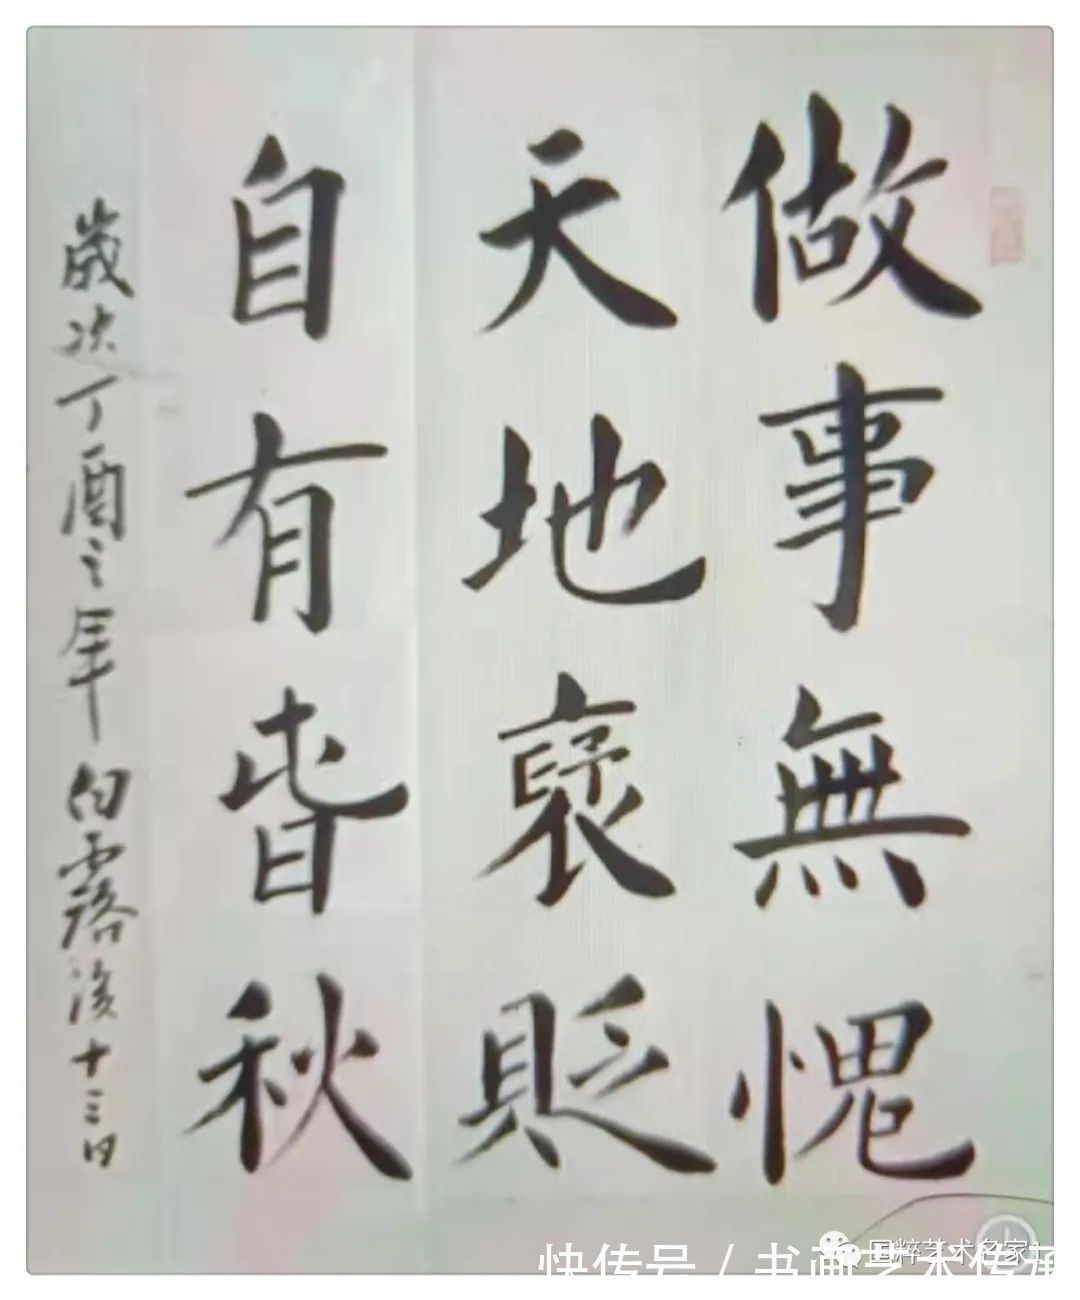 做事無愧
天地褒貶
自有旾秋
歲次丁酉之年白露後十三日
国粹艺术名家
快传号 / 书画艺术传承